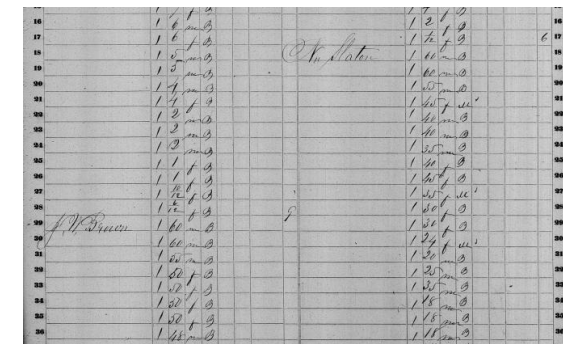 16 1 6 m B 1 2 f B 16
17 1 6 f B 1 1/12 f B 6 17
18 1 5 m B Wm Slaton 1 60 m B 18
19 1 5 m B 1 60 m B 19
20 1 4 m B 1 55 m B 20
21 1 4 f B 1 45 f M 21
22 1 2 m B 1 40 m B 22
23 1 2 m B 1 40 m B 23
24 1 2 m B 1 35 m B 24
25 1 1 f B 1 40 f B 25
26 1 1 f B 1 45 f B 26
27 1 10/12 f B 1 35 f M 27
28 1 6/12 f B 1 30 f B 28
29 1 60 m B 1 30 f B 29
30 1 60 m B 1 24 f M 30
31 1 55 m B 1 20 m B 31
32 1 50 f B 1 25 m B 32
33 1 50 f B 1 35 m B 33
34 1 50 f B 1 18 m B 34
35 1 50 f B 1 18 m B 35
36 1 48 m B 1 18 m B 36